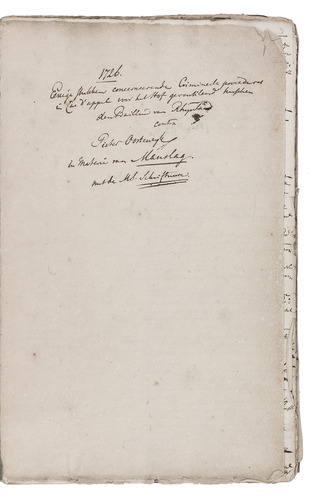 1726.
Eenige stukken concerneerende Crimineele procedures
in Cas d'appel voor het Hof geventileerd tusschen
den Bailliu van Rhynland
contra
Pieter Oosterwyk
in Materie van Manslag.
met de M.S. Schriftuure.